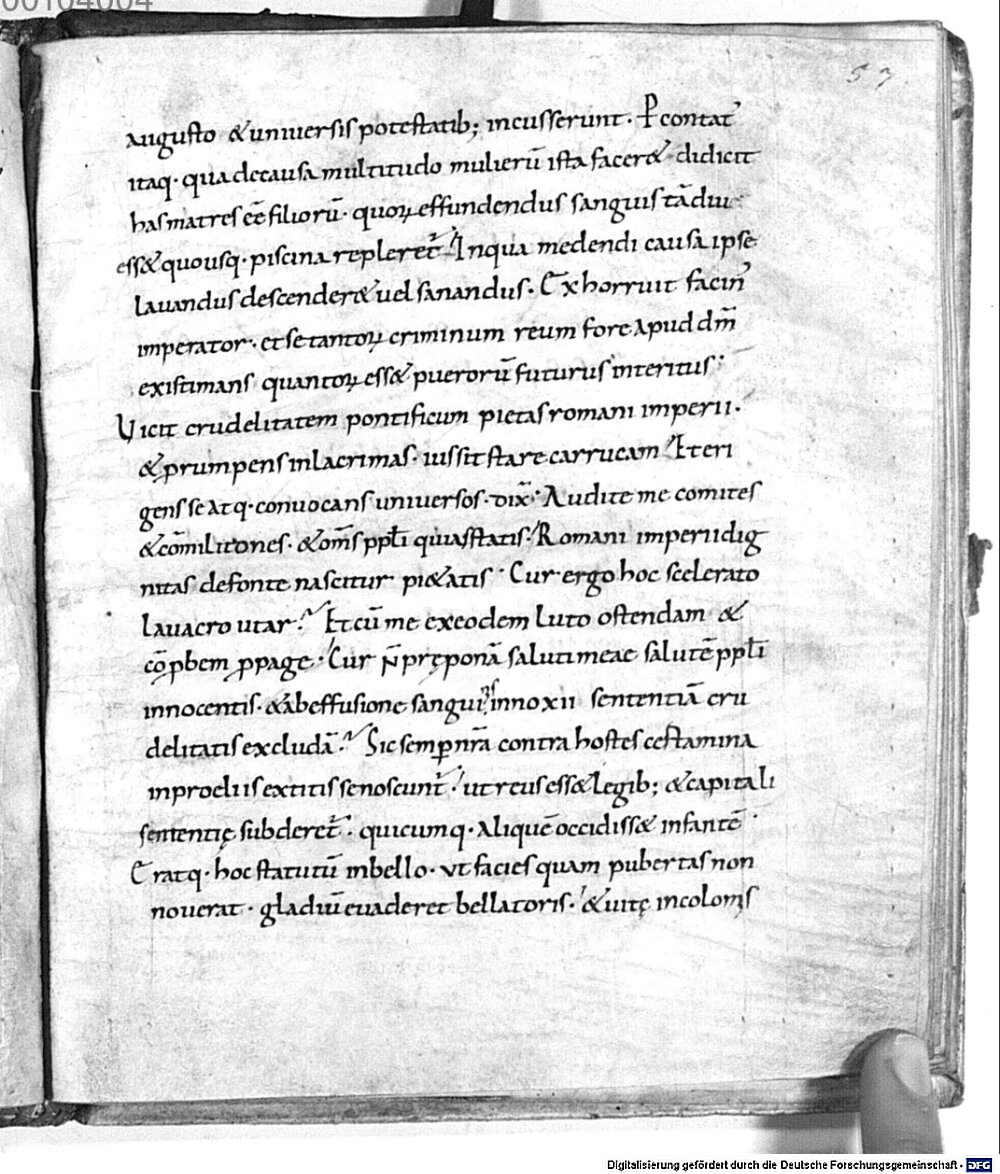 00104004
57
augusto &uniuersis potestatib; incusserunt· P̲contat᷒
itaq· qua decausa multitudo mulierū ista facer&· didicit
has matres eē filiorū· quoꝝ effundendus sanguis tādiu
ess& quousq· piscina repleret᷒· Inqua medendi causa ipse
lauandus descender& uel sanandus· Exhorruit facin᷒
imperator· et se tantoꝝ criminum reum fore apud dm̄
existimans quantoꝝ ess& puerorū futurus interitus·
Uicit crudelitatem pontificum pietas romani imperii·
&prumpens inlacrimas· iussit stare carrucam· Et eri
gens se atq· conuocans uniuersos· dix̄· Audite me comites
&cōmilitones· &om̄s ppl̄i qui asstatis· Romani imperii dig
nitas defonte nascitur pi&atis· Cur ergo hoc scelerato
lauacro utar? Et cū me exeodem luto ostendam &
cōꝑbem ꝓpage· Cur n̄ pręponā saluti meae salutē ppl̄i
innocentis· &abeffusione sanguinis innoxii sententiā cru
delitatis excludā? Sic semꝑ nr̄a contra hostes cestamina
inproeliis extitisse noscunt᷒· ut reus ess& legib; &capitali
sententię subderet᷒· quicumq· aliquē occidiss& infantē·
Eratq· hoc statutū inbello· ut facies quam pubertas non
nouerat· gladiū euaderet bellatoris· &uitę incolom̄s
Digitalisierung gefördert durch die Deutsche Forschungsgemeinschaft - DFG